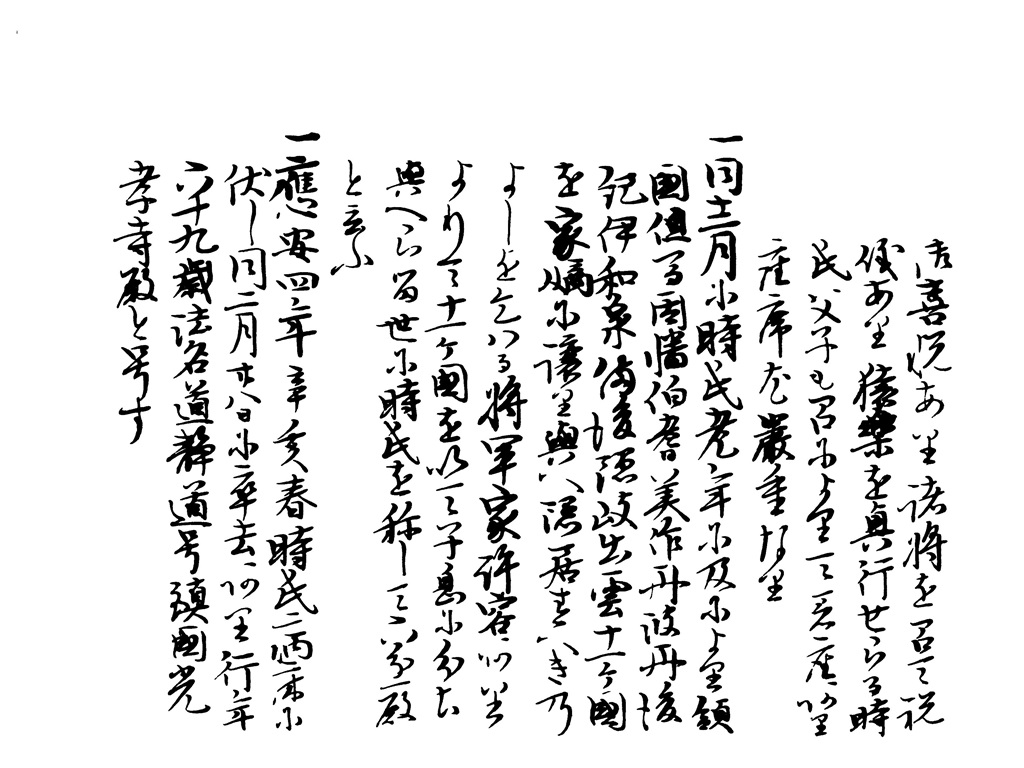 御喜悦あり諸将を召て祝
儀あり猿楽を真行せらる時
氏父子も召によりて着座あり
座席尤巌重なり
一同十二月に時氏老年に及によりて領
国但馬因幡伯耆美作丹波丹後
紀伊和泉備後隠岐出雲十一ヶ国
を家嫡に譲り與へ隠居すへき乃
よしを乞ハる将軍家許容ありし
よりて十一ヶ国を以て子息に分ち
與へらる世に時氏を称して六分一殿
と云ふ
一應安四年辛亥春時氏病床に
伏し同二月廿八日に卒去あり行年
六十九歳法名道静道号鎮國光
孝寺殿と号す